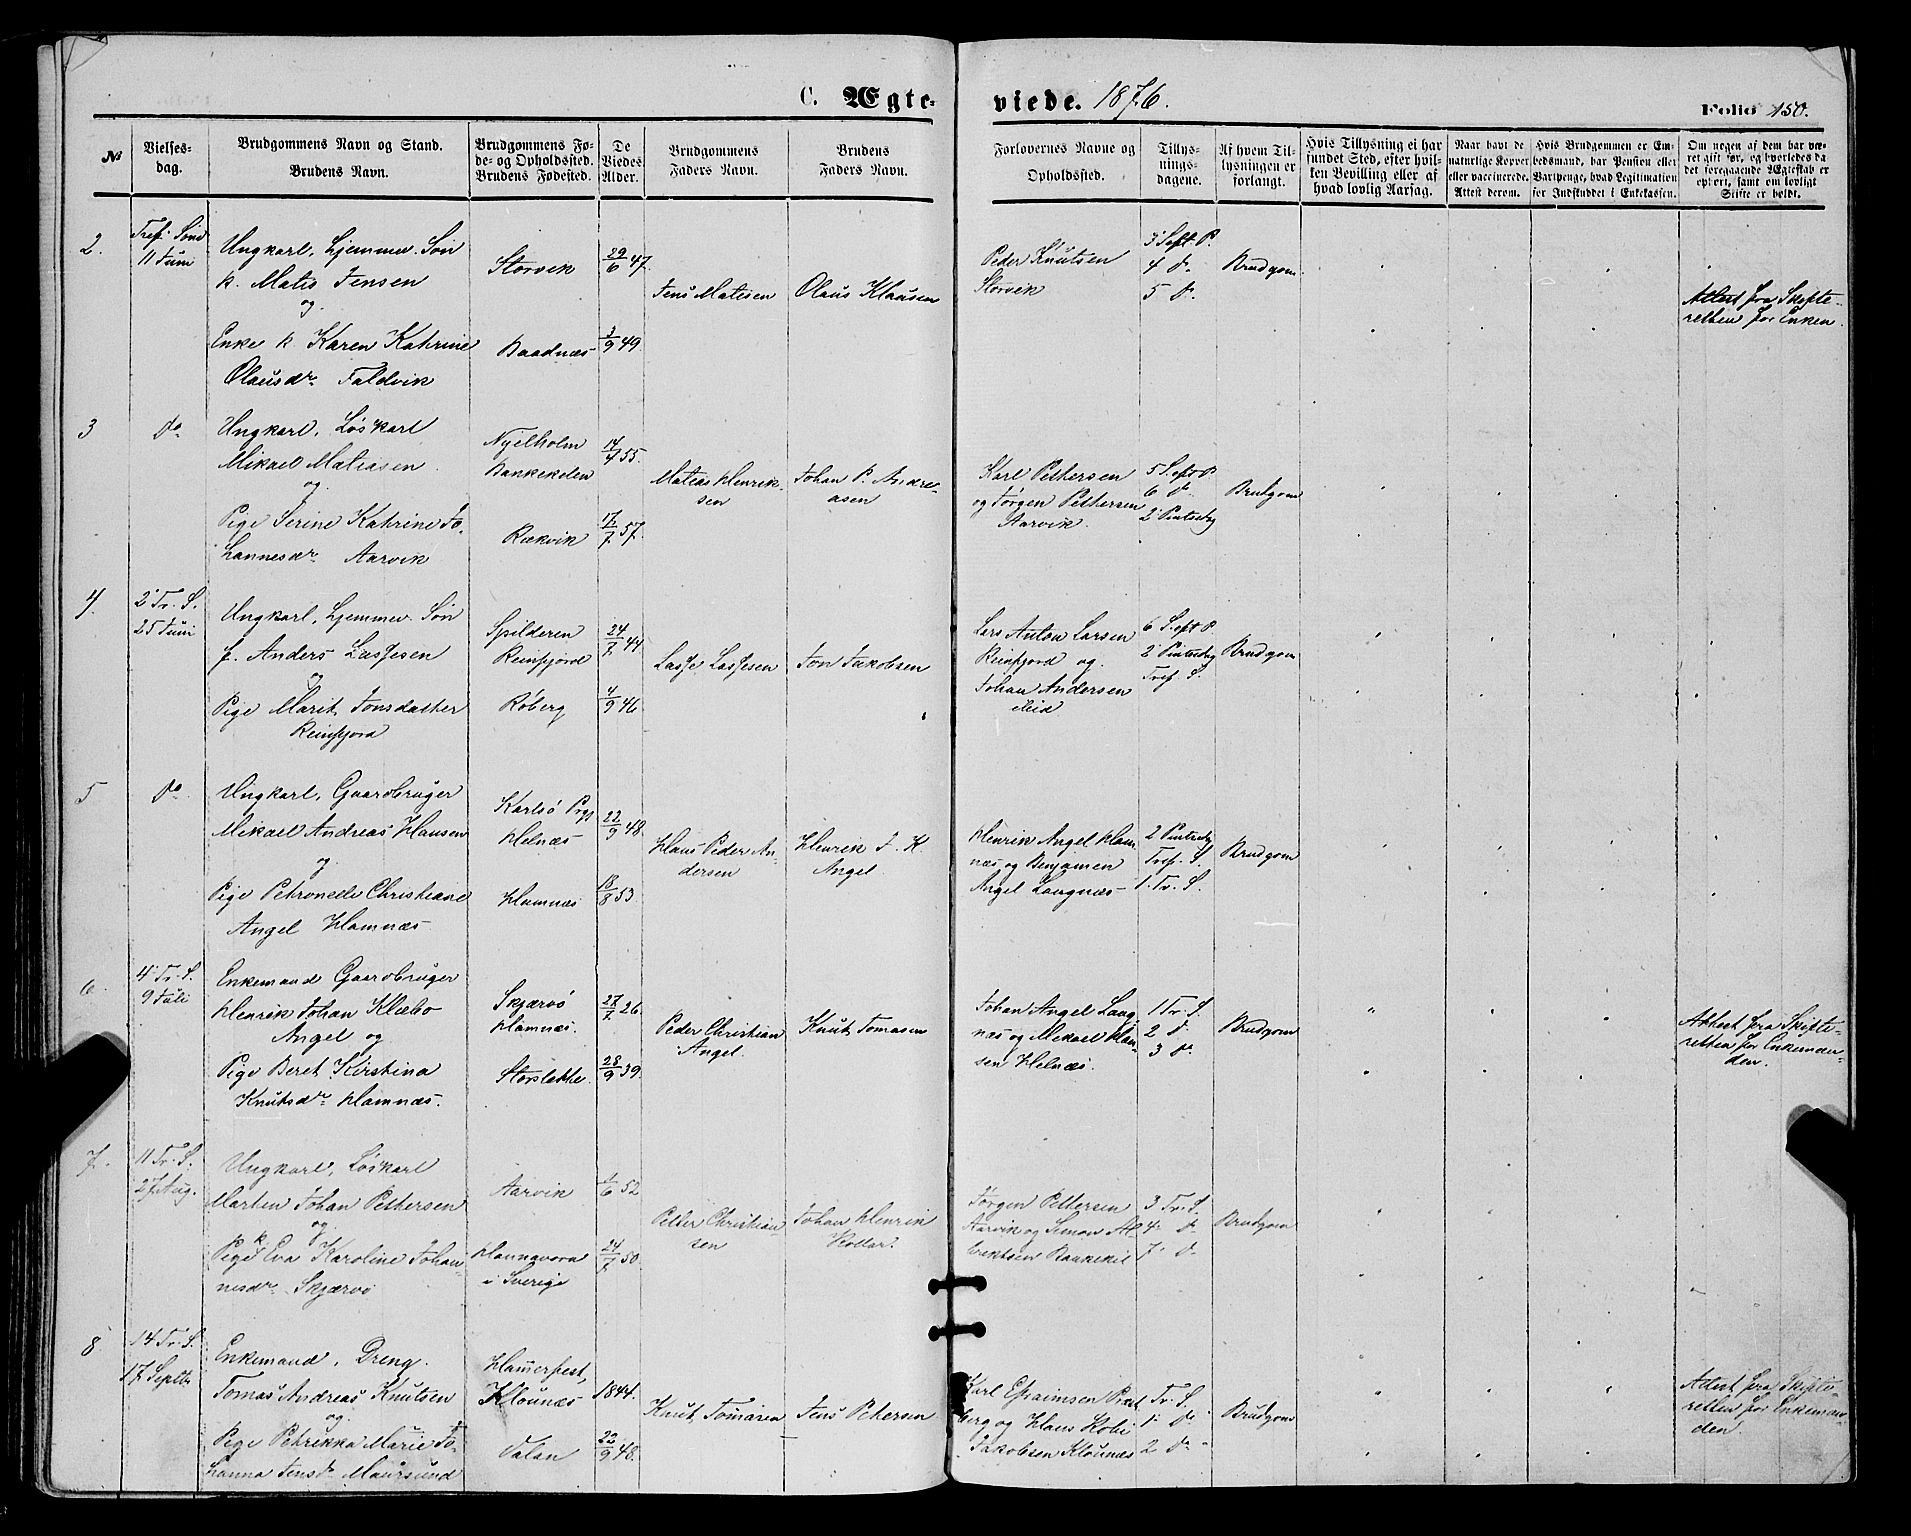 C. Ægte-
viede. 1876.
Folio 150.
No
Vielses-
dag.
Brudgommens Navn og Stand.
Brudens Navn.
Brudgommens Fø-
de- og Opholdssted.
Brudens Fødested.
De
Viedes
Alder.
Brudgommens
Faders Navn.
Brudens
Faders Navn.
Forlovernes Navne og
Opholdssted.
Tillys-
nings-
dagene.
Af hvem Til-
lysningen er
forlangt.
Hvis Tillysning ei har
fundet Sted, efter hvil-
ken Bevilling eller af
hvad lovlig Aarsag.
Naar havt de
naturlige Kopper
eller vaccinerede.
Attest derom.
Hvis Brudgommen er Em-
bedsmand, har Pension eller
Vartpenge, hvad Legitimation
for Indskuddet i Enkekassen.
Om nogen af dem har væ-
ret gift før, og hvorledes da
det foregaaende Ægteskab er
ophørt, samt om lovligt
Skifte er holdt.
2.
Tref. Sønd
11 Juni
Ungkarl, hjemmev. Søn
k. Matis Jensen
og
Enke k. Karen Kathrine
Olausdr. Faldvik
Storvik
Baadnæs
29/6 47.
3/9 49
Jens Matisen
Olaus Klausen
Peder Knutsen
Storvik
3 S. eft. P.
4 do
5 do
Brudgom
Attest fra Skifte-
retten for Enken.
3
do
Ungkarl, Løskarl
Mikael Matiasen
og
Pige Serine Kathrine Jo-
hannesdr. Aarvik
Nyelholm
Bankekelen
Rækvik
55.
17/7 57.
Matias Henrik-
sen
Johan P. Andre-
asen
Karl Pettersen
og Jørgen Pettersen
Aarvik.
5 S. eft P.
6 do
2 Pintsedag
Brudgom
4.
2 Tr. S.
25 Juni
Ungkarl, hjemmev. Søn
f. Anders Lassesen
og
Pige Marit Jonsdatter
Reinfjord
Spilderen
Reinfjord
Røberg
24/7 44
4/9 46
Lasse Lassesen
Jon Jakobsen
Lars Anton Larsen
Reinfjord og
Johan Andersen
Eid
6 S. eft P.
2 Pintsedag
Tref. S.
Brudgom
5
do
Ungkarl, Gaardbruger
Mikael Andreas Hansen
og
Pige Petronelle Christiane
Angel Hamnæs
Karlsø Prgj
Helnæs
Hamnæs
22/9 48.
18/8 53.
Hans Peder An-
dersen
Henrik J. K.
Angel.
Henrik Angel Ham-
næs og Benjamen
Angel Langnæs
2 Pintsedag
Tref. S.
1. Tr. S.
Brudgom
6.
4 Tr. S.
9 Juli
Enkemand Gaardbruger
Henrik Johan Klæbo
Angel og
Pige Beret Kirstina
Knutsdr. Hamnæs.
Skjærvø
Hamnæs.
Storslette.
27/7 26.
28/9 39.
Peder Christian
Angel.
Knut Tomasen
Johan Angel Lang-
næs og Mikael Han-
sen Helnæs.
1 Tr. S.
2 do
3 do
Brudgom
Attest fra Skifte-
retten for Enkeman-
den.
7.
11 Tr. S.
27 Aug.
Ungkarl, Løskarl
Marten Johan Pettersen
og
Pige k Eva Karoline Johan-
nesdr. Skjærvø
Aarvik
i Sverige
1/6 52
24/7 50.
Petter Christian-
sen
Johan Henrik
Kollar.
Jørgen Pettersen
Aarvik og Simon Al
Eriktsen Bankekil
3 Tr. S.
4 do
7 do
Brudgom
8
14 Tr. S.
17 Septbr
Enkemand, Dreng.
Tomas Andreas Knutsen
og
Pige Petrikka Marie Jo-
hanna Jensdr Maursund
Hamerfest,
Kløunæs
Valan
1844.
22/9 48.
Knut Tomasen
Jens Petersen
Karl Efraimsen Prest
berg og Hans Kobi
Jakobsen Kløunæs
Tr. S.
1 do
2 do
Brudgom
Attest fra Skifte-
retten for Enkeman-
den.